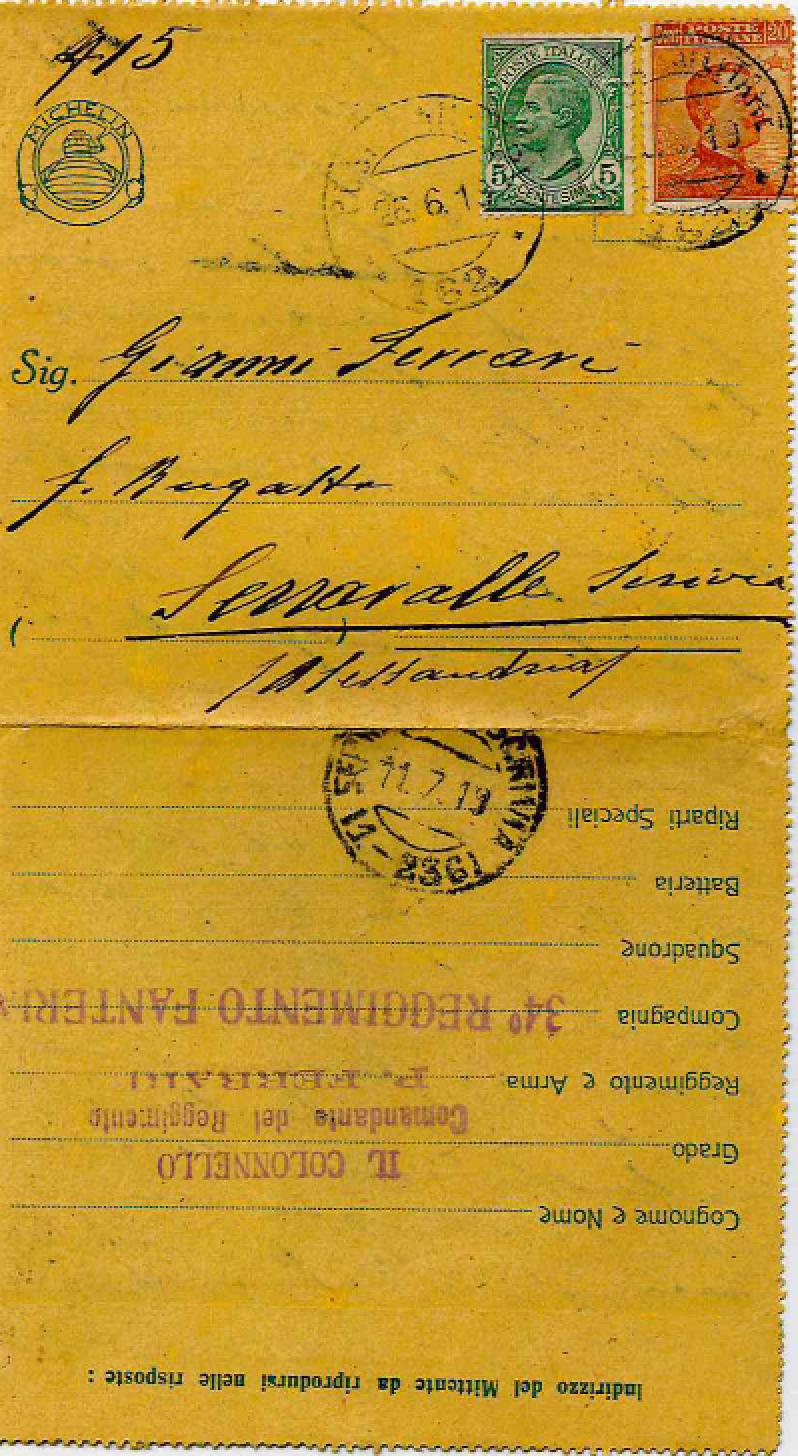 415
MICHELIN
POSTE ITALIANE
5 CENTESIMI 5
POSTE ITALIANE 20
26.6.1
162
Sig. Gianni Ferrari
f. Bugatto
Serravalle Scrivia
(Alessandria)
11.7.19
Indirizzo del Mittente da riprodursi nelle risposte :
Cognome e Nome
IL COLONNELLO
Grado
Comandante del Reggimento
P. FERRARI
Reggimento e Arma
34º REGGIMENTO FANTERIA
Compagnia
Squadrone
Batteria
Riparti Speciali